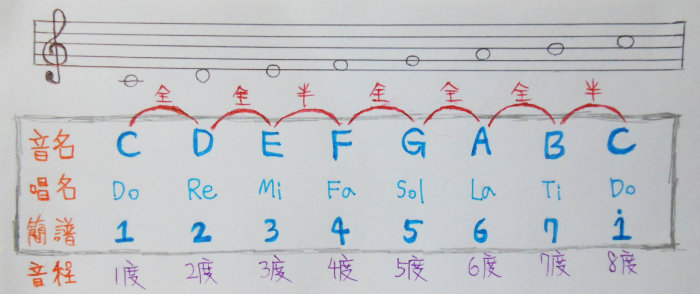 全 全 半 全 全 全 半
音名 C D E F G A B C
唱名 Do Re Mi Fa Sol La Ti Do
簡譜 1 2 3 4 5 6 7 i
音程 1度 2度 3度 4度 5度 6度 7度 8度